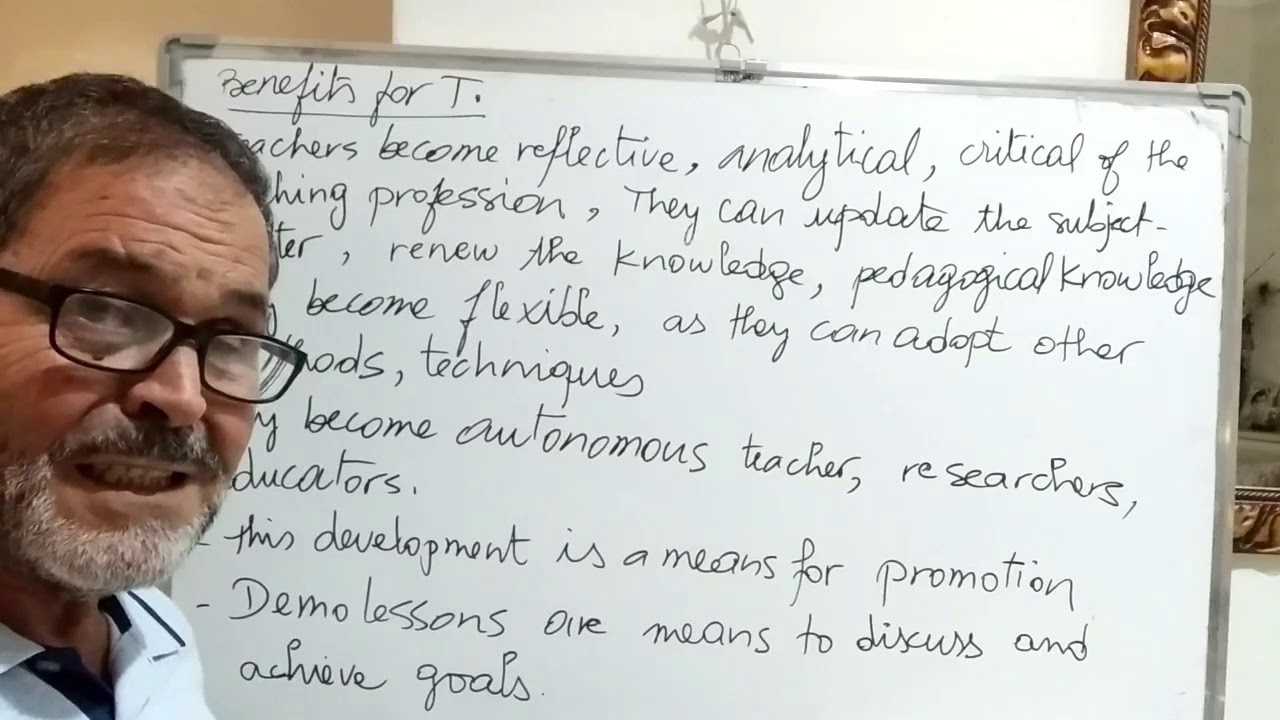 Benefits for T.
eachers become reflective, analytical, critical of the
ching profession, They can update the subject-
ter, renew the knowledge, pedagogical knowledge
y become flexible, as they can adopt other
hods, techniques
y become autonomous teacher, researchers,
ducators.
- this development is a means for promotion
- Demo lessons are means to discuss and
achieve goals.